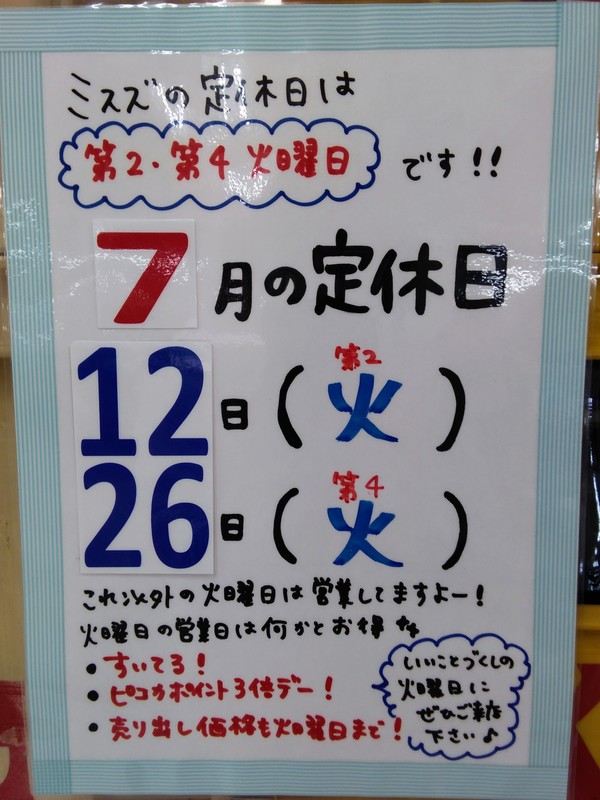 ミスズの定休日は
第2・第4 火曜日 です!!
7月の定休日
12日(第2 火)
26日(第4 火)
これ以外の火曜日は営業してますよー!
火曜日の営業日は何かとお得な
・すいてる!
・ピコカポイント3倍デー!
・売り出し価格も火曜日まで!
いいことづくしの
火曜日に
ぜひご来店
下さい♪